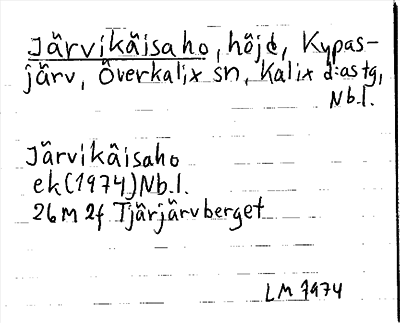 Järvikäisaho, höjd, Kypas-
järv, Överkalix sn, Kalix d:astg,
Nb.l.
Järvikäisaho
ek(1974)Nb.l.
26M 2f Tjärjärvberget
LM 1974